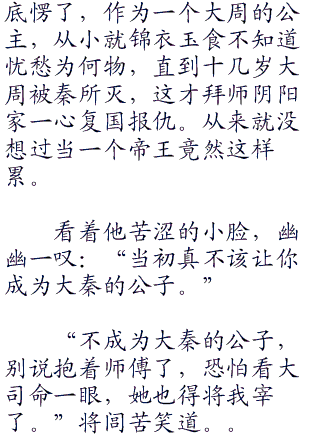 底愣了，作为一个大周的公
主，从小就锦衣玉食不知道
忧愁为何物，直到十几岁大
周被秦所灭，这才拜师阴阳
家一心复国报仇。从来就没
想过当一个帝王竟然这样
累。
看着他苦涩的小脸，幽
幽一叹：“当初真不该让你
成为大秦的公子。”
“不成为大秦的公子，
别说抱着师傅了，恐怕看大
司命一眼，她也得将我宰
了。”将闾苦笑道。。